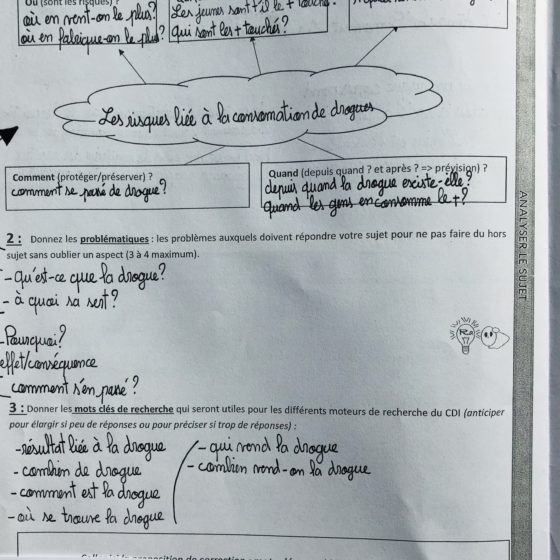 Où (sont les risques) ?
où en vent-on le plus?
où en fabrique-on le plus?
Les jeunes sont-il le + touché?
Qui sont les + touchés?
Les risques liée à la consomation de drogues
Comment (protéger/préserver) ?
comment se passé de drogue?
Quand (depuis quand ? et après ? => prévision) ?
depuis quand la drogue existe-elle?
Quand les gens en consomme le +?
ANALYSER LE SUJET
2 : Donnez les problématiques : les problèmes auxquels doivent répondre votre sujet pour ne pas faire du hors
sujet sans oublier un aspect (3 à 4 maximum).
- Qu'est-ce que la drogue?
- à quoi sa sert?
- Pourquoi?
effet/conséquence
- comment s'en passé?
3 : Donner les mots clés de recherche qui seront utiles pour les différents moteurs de recherche du CDI (anticiper
pour élargir si peu de réponses ou pour préciser si trop de réponses) :
- résultat liée à la drogue
- combien de drogue
- comment est la drogue
- où se trouve la drogue
- qui vend la drogue
- combien vend-on la drogue